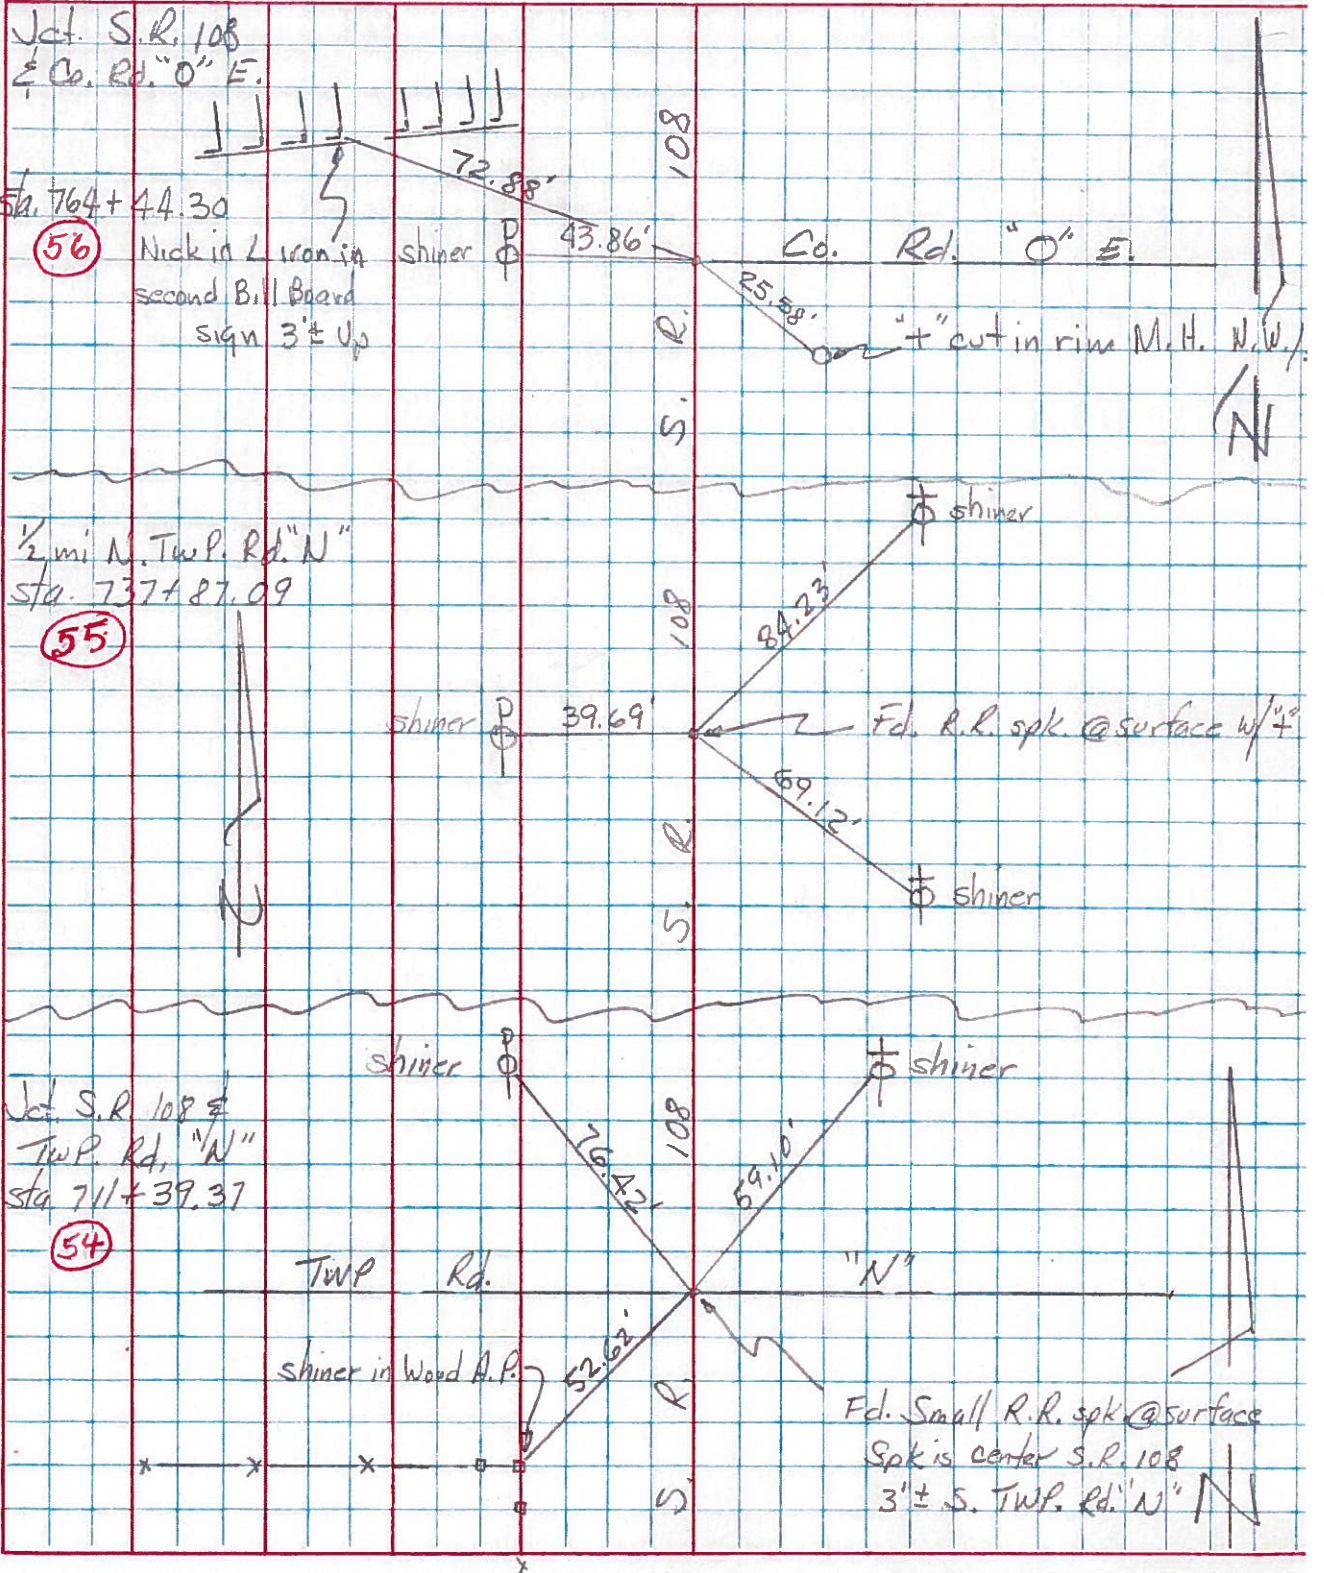 Jct. S.R. 108
& Co. Rd. "O" E.
72.88'
108
Sta. 764+44.30
56
Nick in L iron in
second Bill Board
sign 3'± Up
shiner
P
43.86'
Co. Rd. "O" E.
25.58'
"+" cut in rim M.H. N.W.
S. R.
N
1/2 mi N. Twp. Rd. "N"
sta. 737+87.09
55
shiner
84.23'
108
shiner
P
39.69'
Fd. R.R. spk. @ surface w/ "+"
69.12'
S. R.
N
shiner
shiner
P
shiner
Jct. S.R. 108 &
Twp. Rd. "N"
sta 711+39.37
54
108
76.42'
59.10'
Twp Rd. "N"
shiner in Wood A.P.
52.62'
S. R.
Fd. Small R.R. spk. @ surface
Spk is center S.R. 108
3'± S. Twp. Rd. "N"
N